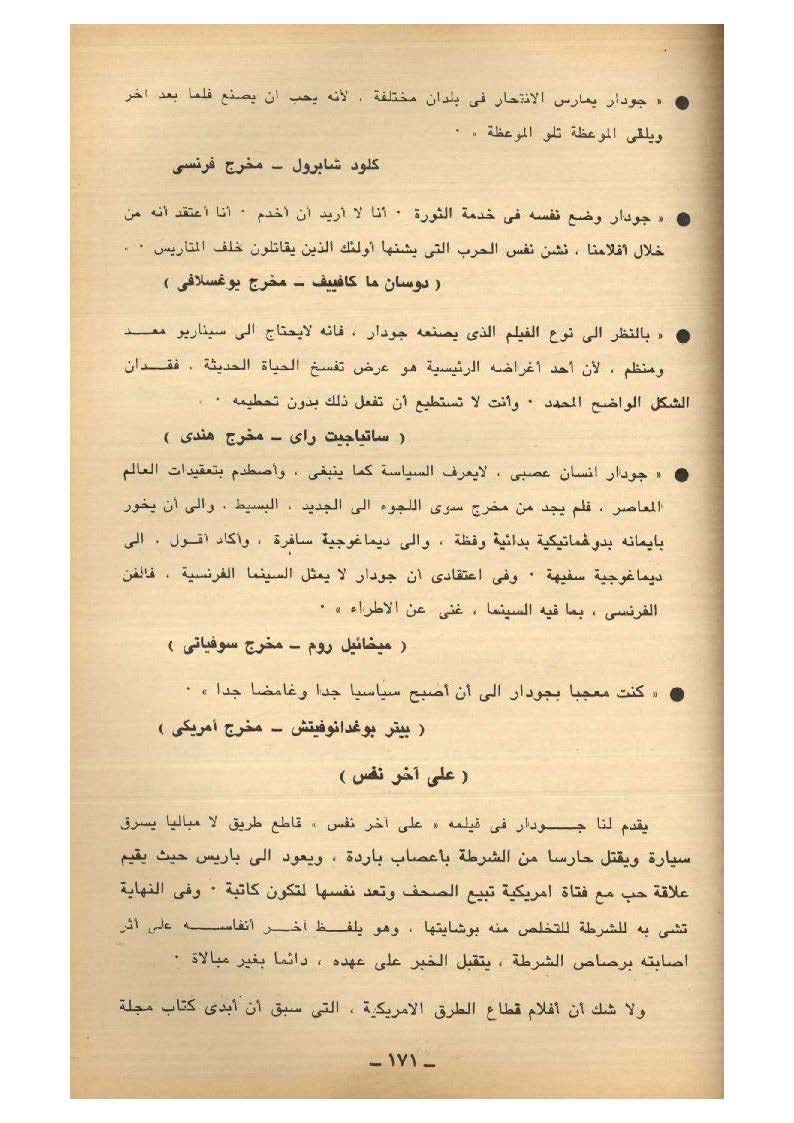 ● « جودار يمارس الانتحار فى بلدان مختلفة ، لأنه يحب ان يصنع فلما بعد آخر
ويلقى الموعظة تلو الموعظة » ٠
كلود شابرول – مخرج فرنسى
● « جودار وضع نفسه فى خدمة الثورة ٠ أنا لا أريد أن أخدم ٠ أنا أعتقد أنه من
خلال أفلامنا ، نشن نفس الحرب التى يشنها أولئك الذين يقاتلون خلف المتاريس ٠ »
( دوسان ما كافييف – مخرج يوغسلافى )
● « بالنظر الى نوع الفيلم الذى يصنعه جودار ، فانه لايحتاج الى سيناريو معـــد
ومنظم ، لأن أحد أغراضه الرئيسية هو عرض تفسخ الحياة الحديثة ، فقـــدان
الشكل الواضح المحدد ٠ وأنت لا تستطيع أن تفعل ذلك بدون تحطيمه ٠ »
( ساتياجيت راى – مخرج هندى )
● « جودار انسان عصبى ، لايعرف السياسة كما ينبغى ، وأصطدم بتعقيدات العالم
المعاصر ، فلم يجد من مخرج سوى اللجوء الى الجديد ، البسيط ، والى أن يخور
بايمانه بدوغماتيكية بدائية وفظة ، والى ديماغوجية سافرة ، وأكاد أقـــول ، الى
ديماغوجية سفيهة ٠ وفى اعتقادى أن جودار لا يمثل السينما الفرنسية ، فالفن
الفرنسى ، بما فيه السينما ، غنى عن الاطراء » ٠
( ميخائيل روم – مخرج سوفياتى )
● « كنت معجبا بجودار الى أن أصبح سياسيا جدا وغامضا جدا » ٠
( بيتر بوغدانوفيتش – مخرج أمريكى )
( على آخر نفس )
يقدم لنا جـــودار فى فيلمه « على آخر نفس » قاطع طريق لا مباليا يسرق
سيارة ويقتل حارسا من الشرطة بأعصاب باردة ، ويعود الى باريس حيث يقيم
علاقة حب مع فتاة امريكية تبيع الصحف وتعد نفسها لتكون كاتبة ٠ وفى النهاية
تشى به للشرطة للتخلص منه بوشايتها ، وهو يلفـــظ آخـــر أنفاســـه على أثر
اصابته برصاص الشرطة ، يتقبل الخبر على عهده ، دائما بغير مبالاة ٠
ولا شك أن أفلام قطاع الطرق الامريكية ، التى سبق أن أبدى كتاب مجلة
– ١٧١ –